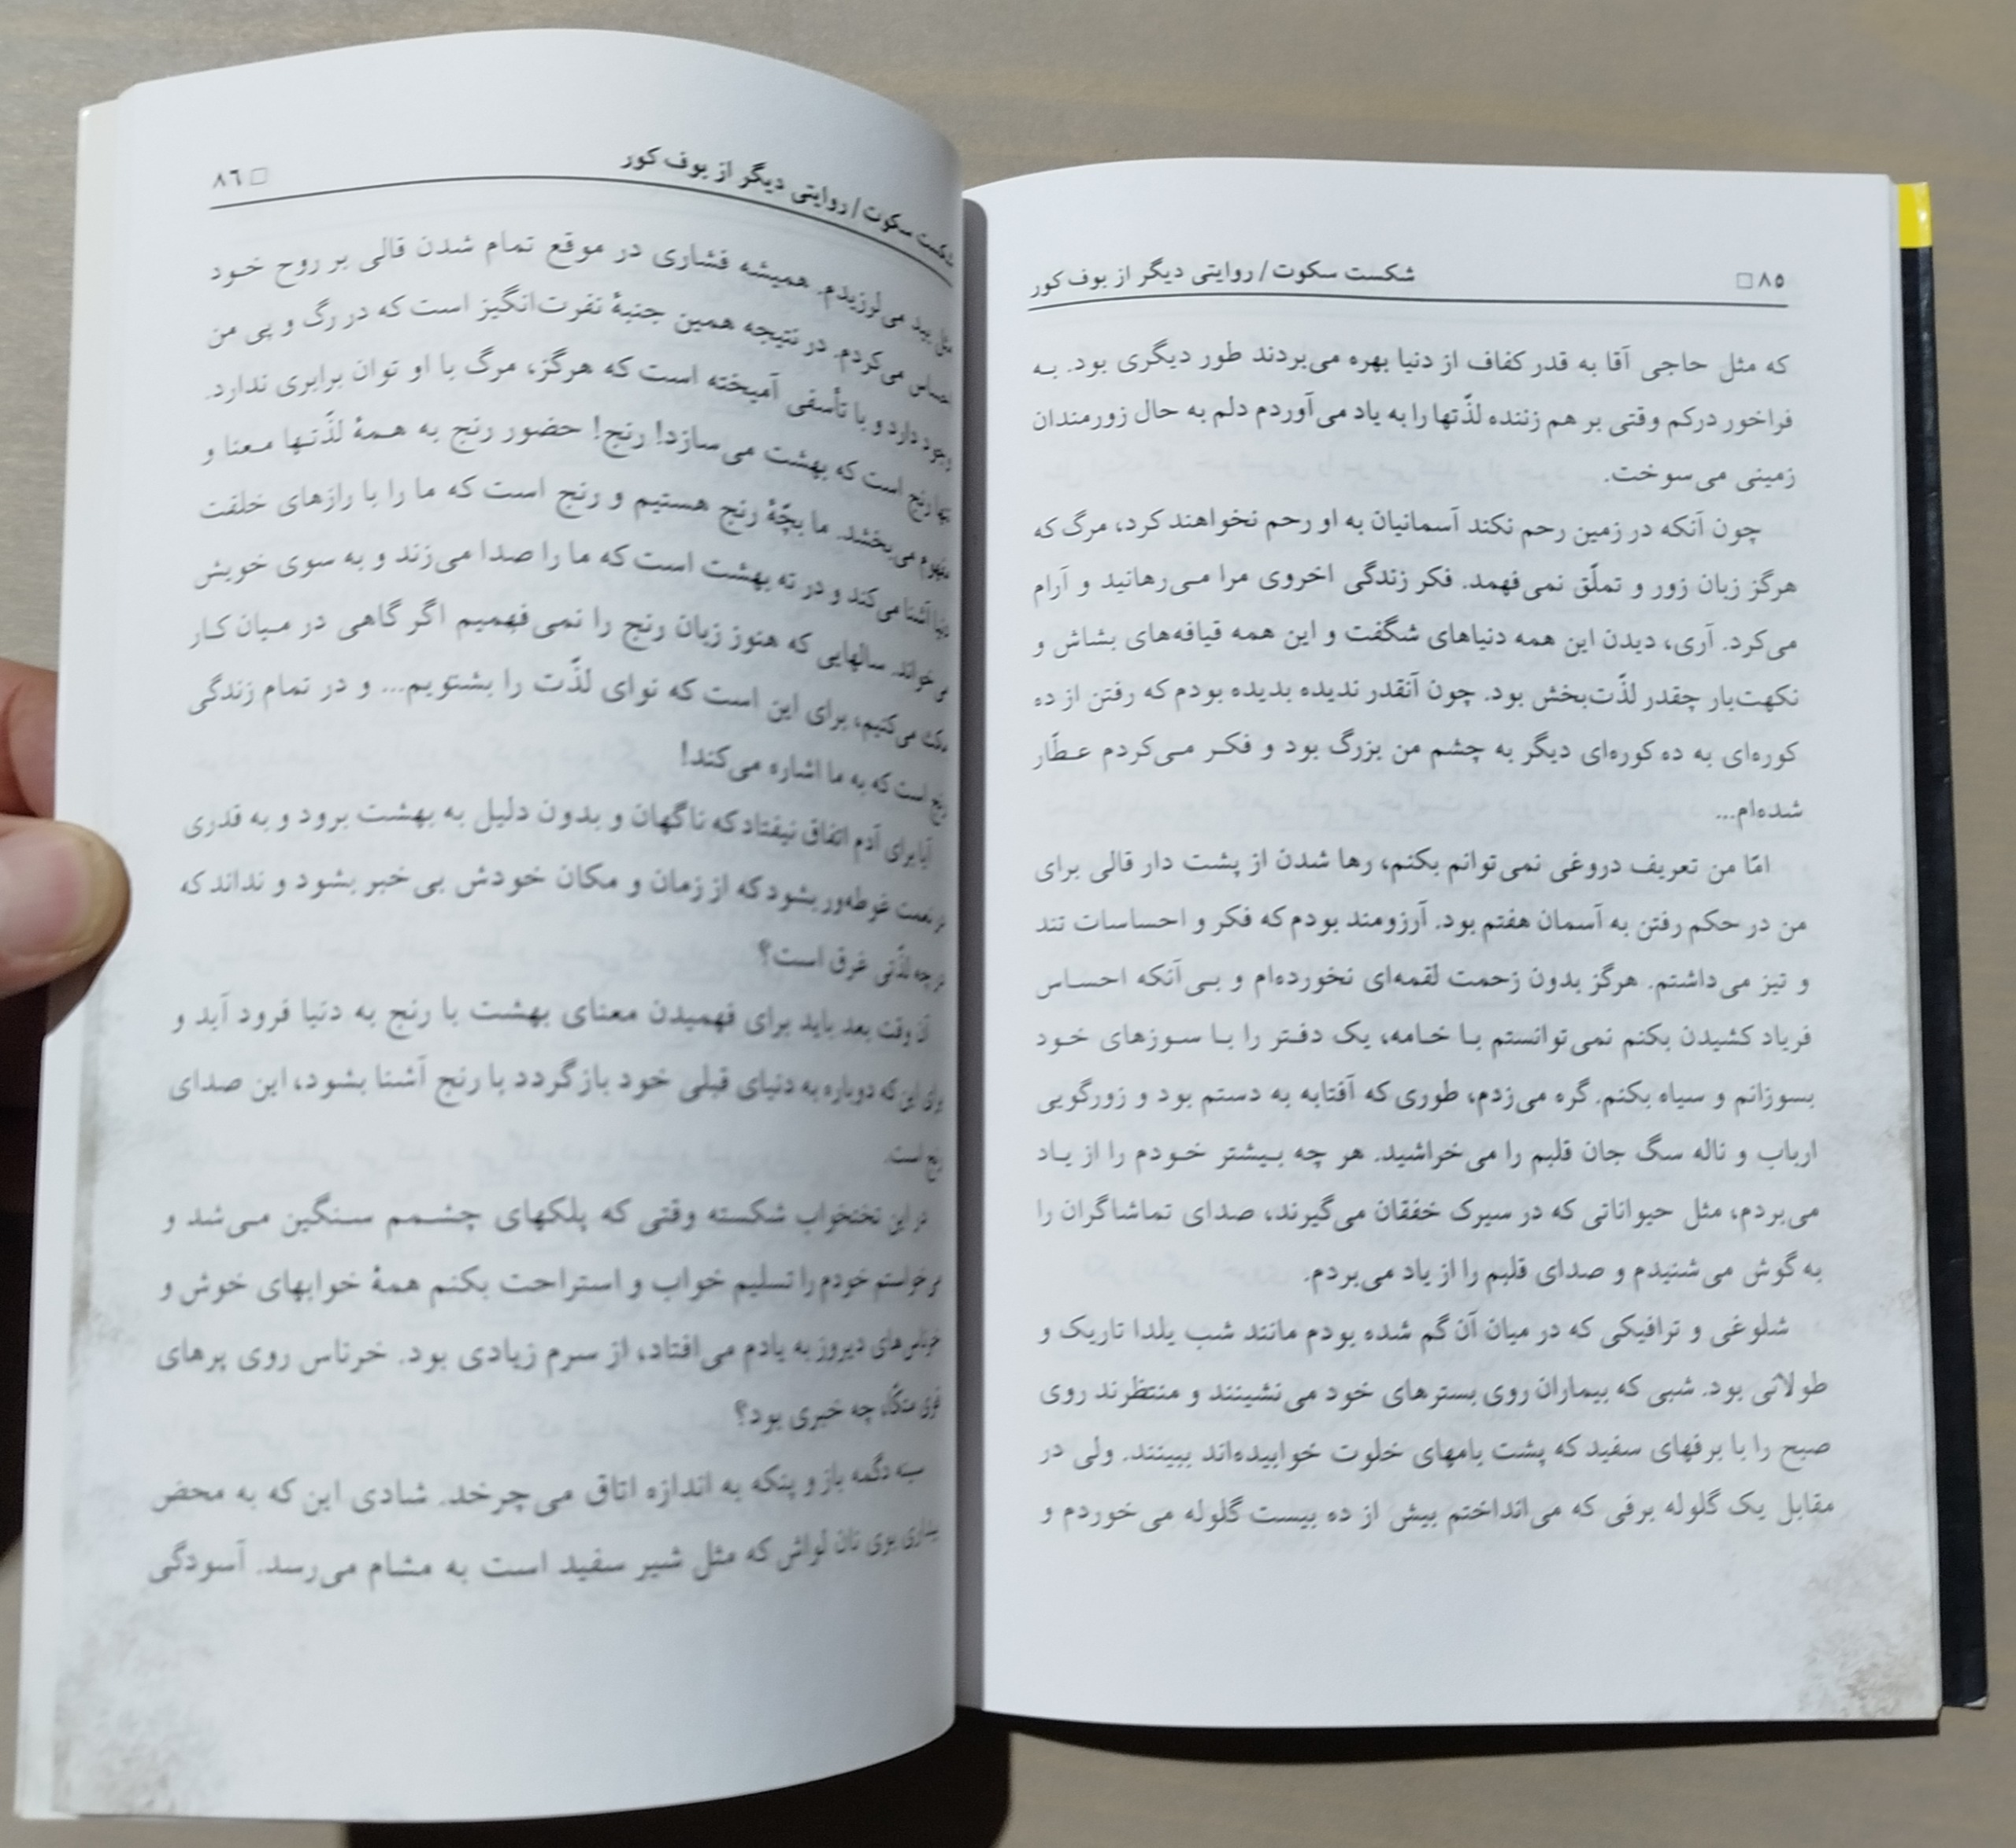 شکست سکوت / روایتی دیگر از بوف کور
□ ۸۵
که مثل حاجی آقا به قدر کفاف از دنیا بهره می‌بردند طور دیگری بود. به
فراخور درکم وقتی بر هم زننده لذّتها را به یاد می‌آوردم دلم به حال زورمندان
زمینی می‌سوخت.
چون آنکه در زمین رحم نکند آسمانیان به او رحم نخواهند کرد، مرگ که
هرگز زبان زور و تملّق نمی‌فهمد. فکر زندگی اخروی مرا می‌رهانید و آرام
می‌کرد. آری، دیدن این همه دنیاهای شگفت و این همه قیافه‌های بشاش و
نکهت‌بار چقدر لذّت‌بخش بود. چون آنقدر ندیده بدیده بودم که رفتن از ده
کوره‌ای به ده کوره‌ای دیگر به چشم من بزرگ بود و فکر می‌کردم عطّار
شده‌ام...
امّا من تعریف دروغی نمی‌توانم بکنم، رها شدن از پشت دار قالی برای
من در حکم رفتن به آسمان هفتم بود. آرزومند بودم که فکر و احساسات تند
و تیز می‌داشتم. هرگز بدون زحمت لقمه‌ای نخورده‌ام و بی‌آنکه احساس
فریاد کشیدن بکنم نمی‌توانستم با خامه، یک دفتر را با سوزهای خود
بسوزانم و سیاه بکنم. گره می‌زدم، طوری که آفتابه به دستم بود و زورگویی
ارباب و ناله سگ جان قلبم را می‌خراشید. هر چه بیشتر خودم را از یاد
می‌بردم، مثل حیواناتی که در سیرک خفقان می‌گیرند، صدای تماشاگران را
به گوش می‌شنیدم و صدای قلبم را از یاد می‌بردم.
شلوغی و ترافیکی که در میان آن گم شده بودم مانند شب یلدا تاریک و
طولانی بود. شبی که بیماران روی بسترهای خود می‌نشینند و منتظرند روی
صبح را با برفهای سفید که پشت بامهای خلوت خوابیده‌اند ببینند. ولی در
مقابل یک گلوله برفی که می‌انداختم بیش از ده بیست گلوله می‌خوردم و
شکست سکوت / روایتی دیگر از بوف کور
□ ۸۶
مثل بید می‌لرزیدم. همیشه فشاری در موقع تمام شدن قالی بر روح خود
احساس می‌کردم. در نتیجه همین جنبهٔ نفرت‌انگیز است که در رگ و پی من
وجود دارد و با تأسفی آمیخته است که هرگز، مرگ با او توان برابری ندارد.
تنها رنج است که بهشت می‌سازد! رنج! حضور رنج به همهٔ لذّتها معنا و
مفهوم می‌بخشد. ما بچّهٔ رنج هستیم و رنج است که ما را با رازهای خلقت
دنیا آشنا می‌کند و در ته بهشت است که ما را صدا می‌زند و به سوی خویش
می‌خواند. سالهایی که هنوز زبان رنج را نمی‌فهمیم اگر گاهی در میان کار
مکث می‌کنیم، برای این است که نوای لذّت را بشنویم... و در تمام زندگی
رنج است که به ما اشاره می‌کند!
آیا برای آدم اتفاق نیفتاد که ناگهان و بدون دلیل به بهشت برود و به قدری
در نعمت غوطه‌ور بشود که از زمان و مکان خودش بی‌خبر بشود و نداند که
در چه لذّتی غرق است؟
آن وقت بعد باید برای فهمیدن معنای بهشت با رنج به دنیا فرود آید و
برای این که دوباره به دنیای قبلی خود بازگردد با رنج آشنا بشود، این صدای
رنج است.
در این تختخواب شکسته وقتی که پلکهای چشمم سنگین می‌شد و
می‌خواستم خودم را تسلیم خواب و استراحت بکنم همهٔ خوابهای خوش و
خرناس‌های دیروز به یادم می‌افتاد، از سرم زیادی بود. خرناس روی پرهای
قوی متکّا، چه خبری بود؟
سینه دگمه باز و پنکه به اندازه اتاق می‌چرخد. شادی این که به محض
بیداری بوی نان لواش که مثل شیر سفید است به مشام می‌رسد. آسودگی